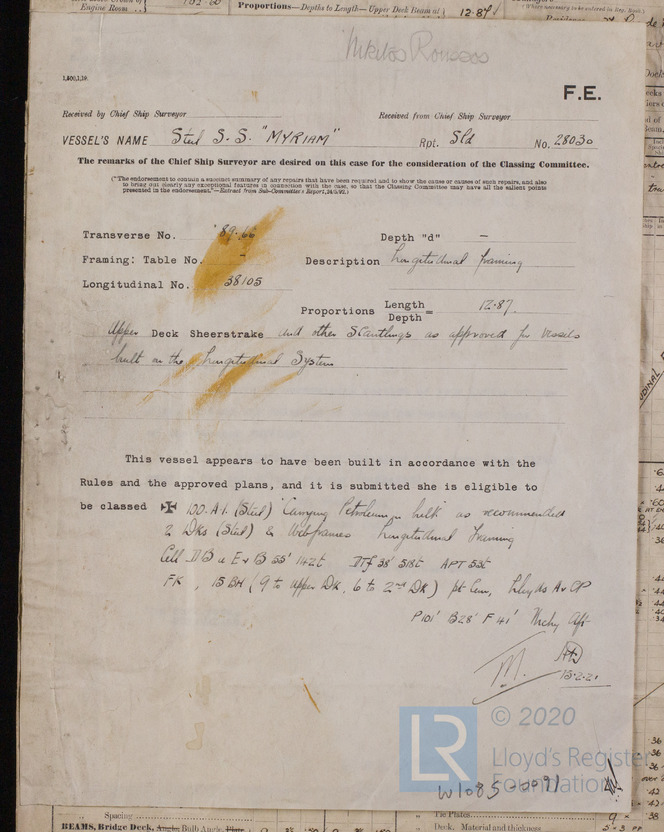 Engine Room
Proportions—Depths to Length—Upper Deck Beam at
12.87
Nikitas Roussos
1,500,1,19.
F.E.
Received by Chief Ship Surveyor
Received from Chief Ship Surveyor
VESSEL'S NAME Steel S.S. "MYRIAM" Rpt. Sld No. 28030
The remarks of the Chief Ship Surveyor are desired on this case for the consideration of the Classing Committee.
("The endorsement to contain a succinct summary of any repairs that have been required and to show the cause or causes of such repairs, and also
to bring out clearly any exceptional features in connection with the case, so that the Classing Committee may have all the salient points
presented in the endorsement."—Extract from Sub-Committee's Report,
Transverse No. 89.66 Depth "d" –
Framing: Table No. – Description Longitudinal framing
Longitudinal No. 38105
Proportions Length/Depth = 12.87.
Upper Deck Sheerstrake and other Scantlings as approved for Vessels
built on the Longitudinal System
This vessel appears to have been built in accordance with the
Rules and the approved plans, and it is submitted she is eligible to
be classed ✠ 100.A.1. (Steel) "Carrying Petroleum in bulk" as recommended
2 Dks (Steel) & Webframes Longitudinal Framing
Cell D B a E & B 55' 142t DTf 38' 518t APT 53t
FK, 15 BH (9 to upper Dk, 6 to 2nd Dk) pt Cem, Lloyds A & CP
P101' B28' F 41' Mchy Aft
13.2.21
© 2020
LR
Lloyd's Register
Foundation
W1085-0091
Spacing
BEAMS, Bridge Deck, Angle, Bulb Angle, Plate
Tie Plates
Deck. Material and thickness